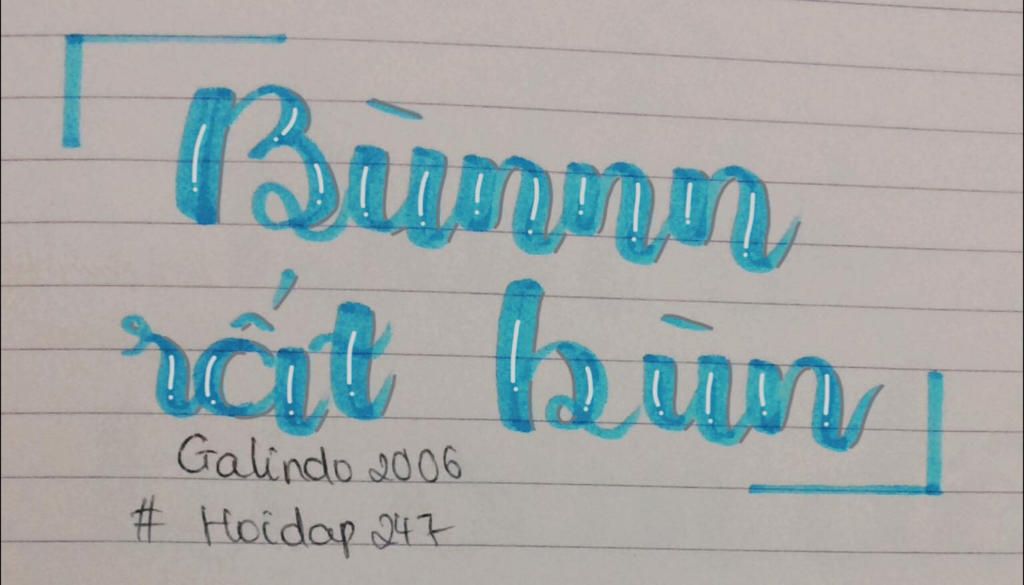 Bùnnn
rất bùn
Galindo 2006
# Hoidap 247